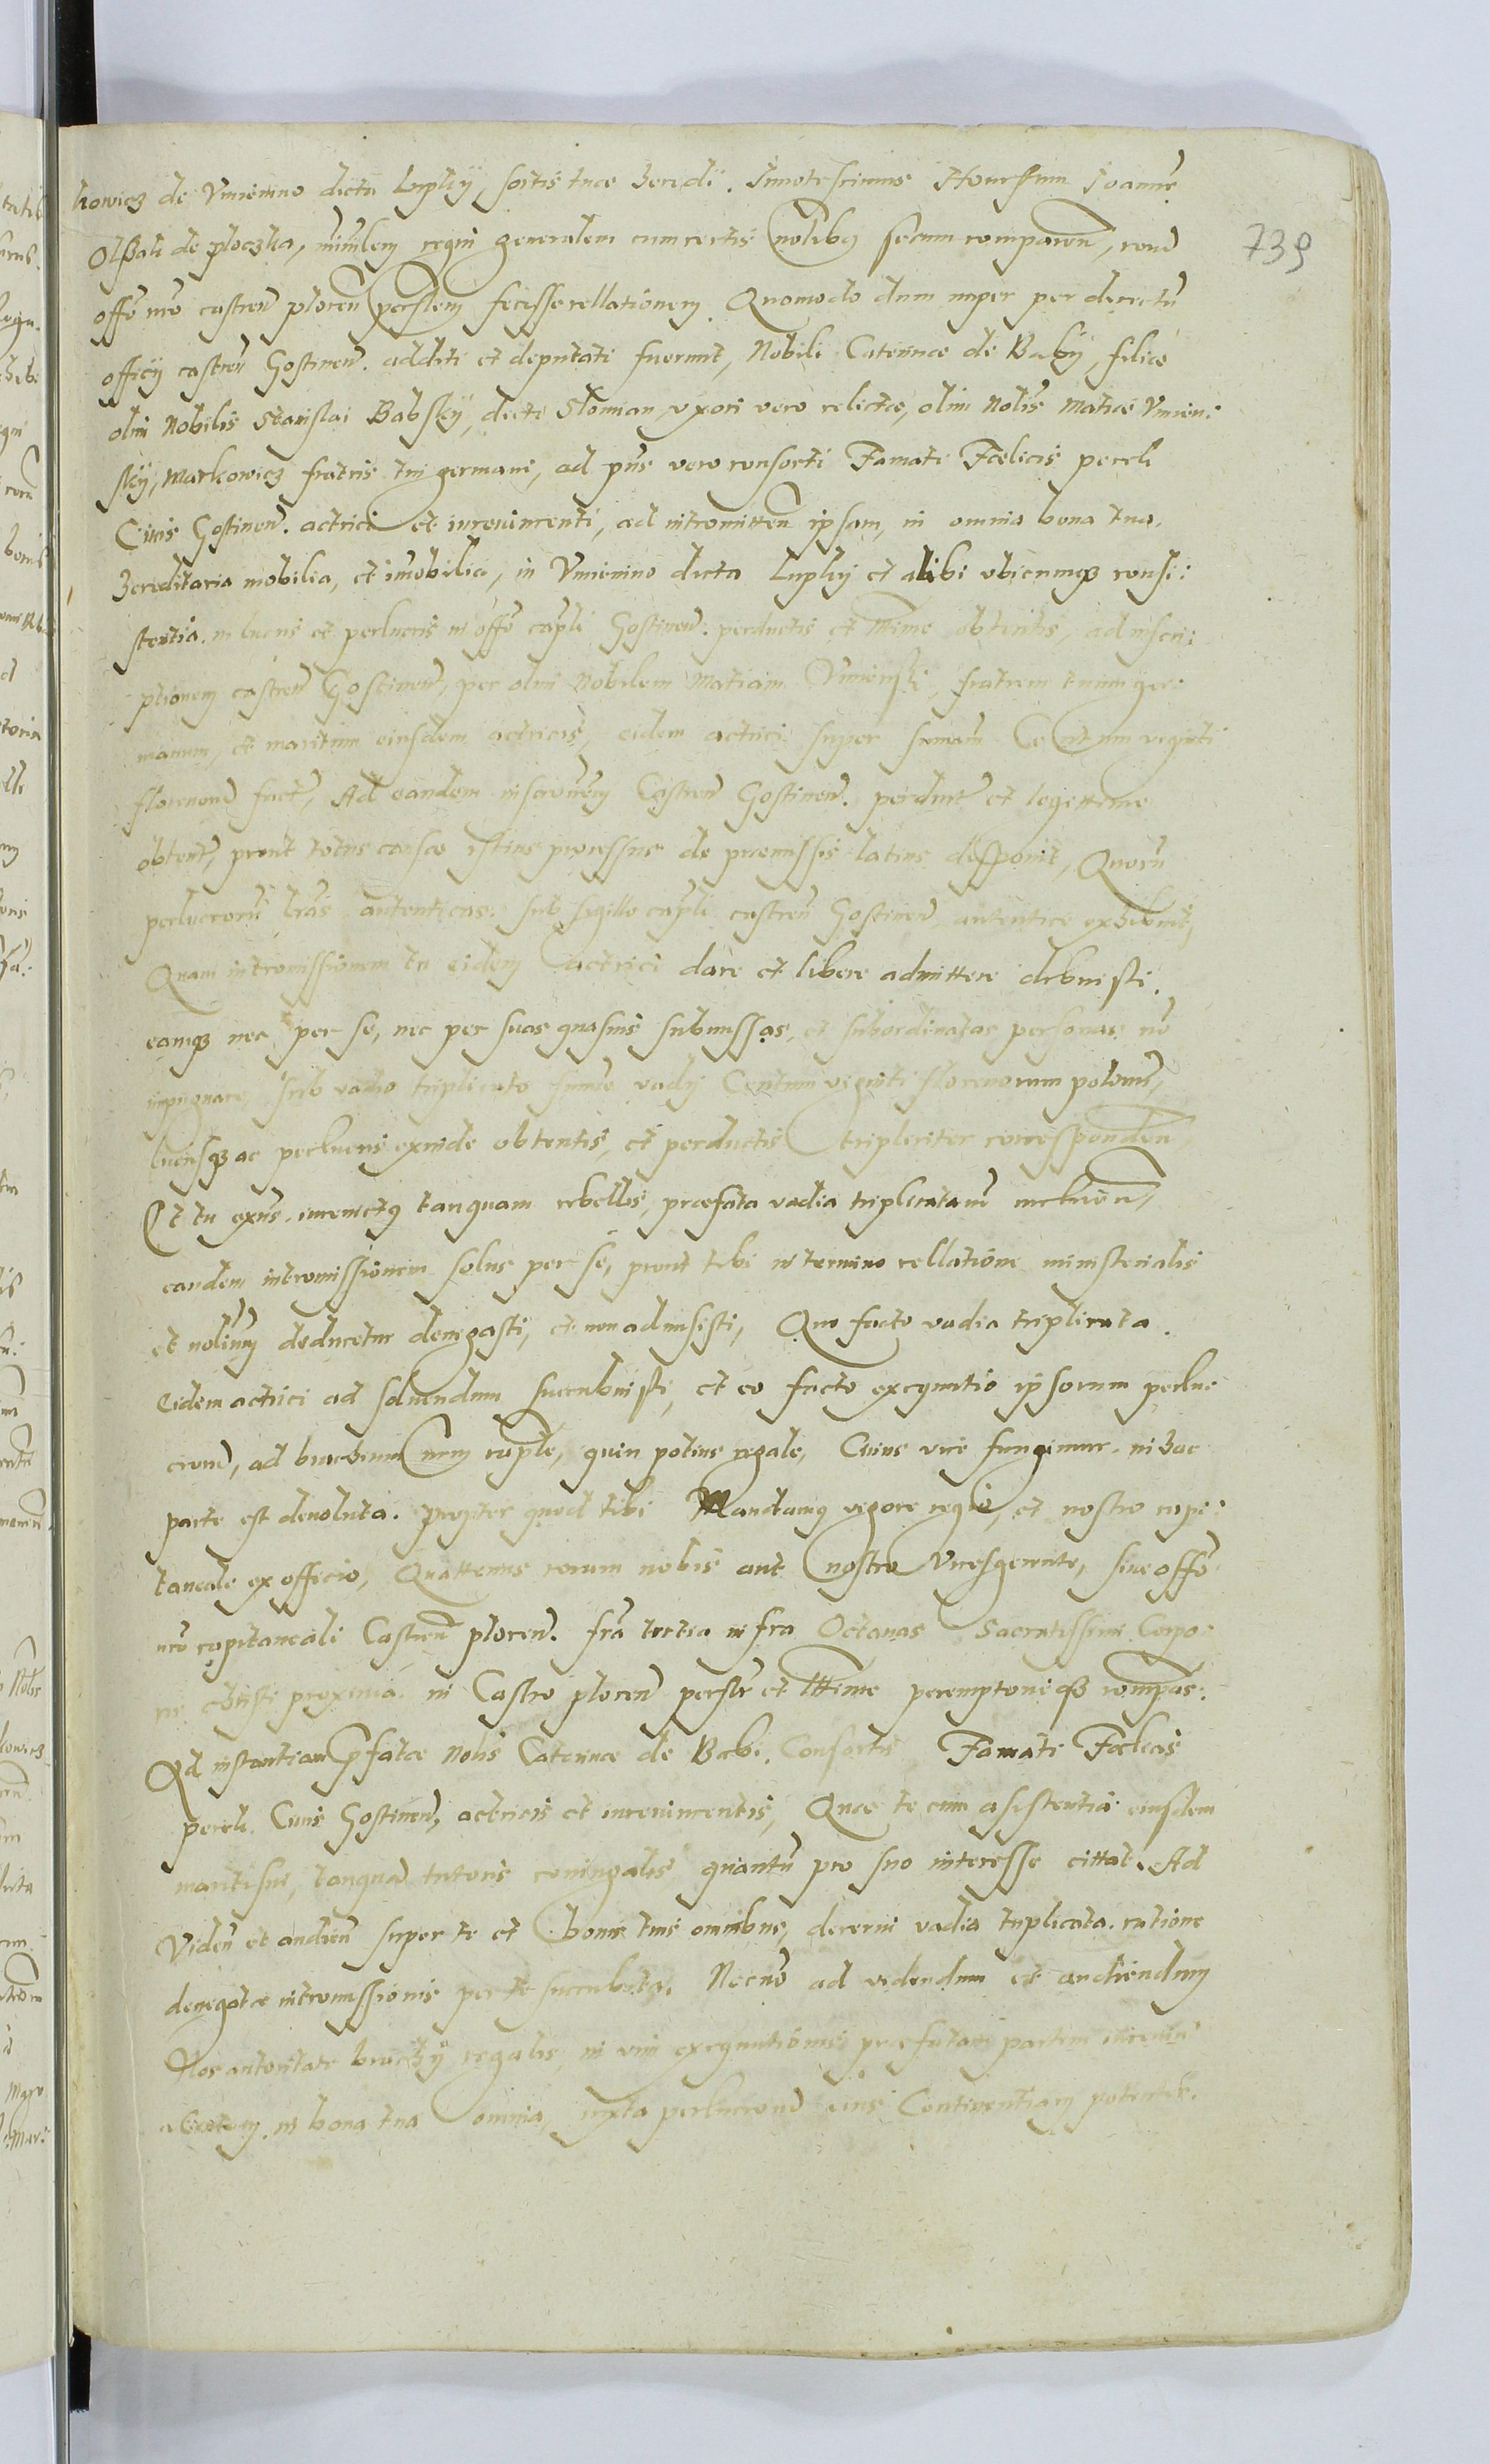 kowicz de Vmienino dicta Lupky, sortis tuae heredi. Innotescimus Honestum Joannē
Olszak de ploczka, ministlem regni generalem cum certis nolibus secum comparen, corā
offō nrō castreñ ploceñ psonlem fecisse rellationem. Quomodo dum nuper per decretū
officij castreñ Gostineñ. additi et deputati fuerunt, Nobili Caterinae de Baby, filiae
olim Nobilis Stanislai Babsky, dicti Slomian, vxori vero relictae, olim Nolis Matiae Vmien:
sky, Markowicz fratris tui germani, ad pns vero consorti Famati Foelicis percli
Ciuis Gostineñ. actrici et iureuincenti, ad intromitteñ ipsam, in omnia bona tua.
hereditaria mobilia, et imobilia, in Vmienino dicta Lupky et alibi vbicumqz consi:
stentia. in lucris et perlucris in offō capli Gostineñ: perductis et lttime obtentis, ad inscri:
ptionem castreñ Gostineñ, per olim Nobilem Matiam Vmiensky, fratrem tuum ger:
manum, et maritum eiusdem actricis, eidem actrici super sumam Centum viginti
florenorū factā, Ad eandem inscronem Castreñ Gostineñ. perduct et legittime
obtent, prout totus causae istius processus de praemissis latius disponit, Quorū
perlucrorū lras autenticas. sub sigillo capli castreñ Gostineñ autentice exhibuit,
Quam intromissionem tu eidem actrici dare et libere admittere debuisti.
eamqz nec per se, nec per suas quasuis submissas, et subordinatas personas nō
impugnare, sub vadio triplicato sumae vadij Centum viginti florenorum polonis,
lucrisqz ac perlucris exinde obtentis, et perductis tripliciter corresponden,
Et tu exns. iureuictus tanquam rebellis, praefata vadia triplicata
eandem intromissionem solus per se, prout tibi in termino rellatione ministerialis
et nolium deducetur denegasti, et non admisisti, Quo facto vadia triplicata.
Eidem actrici ad soluendum succubuisti, et eo facto exequutio ipsorum perlu:
crorū, ad brachium nrm caple, quin potius regale, Cuius vice fungimur. in hac
parte est deuoluta. propter quod tibi Mandamus vigore regio, et nostro capi:
taneali ex officio, Quattenus coram nobis aut nostro Vicesgerente, siue offō
nrō capitaneali Castreñ ploceñ. fra tertia infra Octauas Sacratissimi Corpo:
ris christi proxima. in Castro ploceñ psonlr et lttime peremptorieqz compas:
Ad instantiam pfatae Nolis Caterinae de Babi. Consortis Famati Foelicis
percli Ciuis Gostineñ, actricis et iureuincentis, Quae te cum asistentia eiusdem
mariti sui, tanquā tutoris coniugalis quantū pro suo interesse cittat. Ad
Videñ et audieñ super te et bonis tuis omnibus, decerni vadia triplicata. ratione
denegatae intromissionis per te succubita. Necnō ad videndum et audiendum
Nos autoritate brachij regalis, in vim exequutionis praefatam partem iureuin
actricem, in bona tua omnia, iuxta perlucrorū eius Continentiam potenter.
739